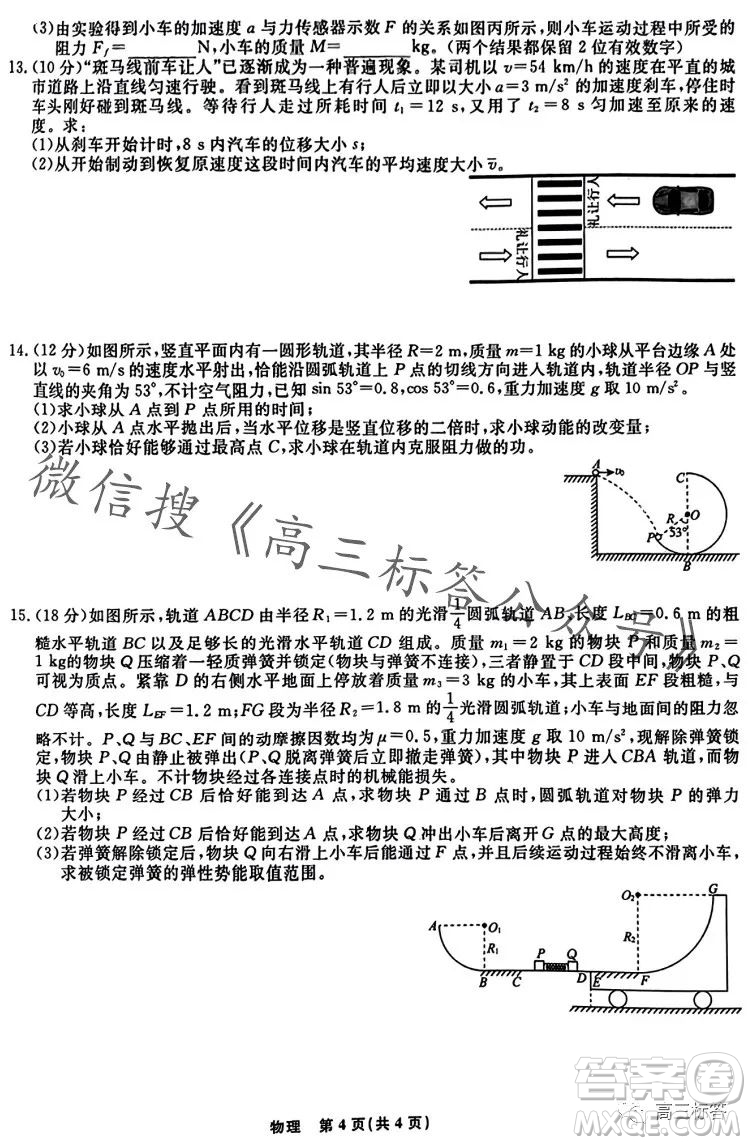 (3)由实验得到小车的加速度 a 与力传感器示数 F 的关系如图丙所示,则小车运动过程中所受的
阻力 Ff=________N,小车的质量 M=________kg。(两个结果都保留 2 位有效数字)
13.(10 分)“斑马线前车让人”已逐渐成为一种普遍现象。某司机以 v=54 km/h 的速度在平直的城
市道路上沿直线匀速行驶。看到斑马线上有行人后立即以大小 a=3 m/s² 的加速度刹车,停住时
车头刚好碰到斑马线。等待行人走过所耗时间 t₁=12 s,又用了 t₂=8 s 匀加速至原来的速
度。求:
(1)从刹车开始计时,8 s 内汽车的位移大小 s;
(2)从开始制动到恢复原速度这段时间内汽车的平均速度大小 v̄。
礼让行人
礼让行人
14.(12 分)如图所示,竖直平面内有一圆形轨道,其半径 R=2 m,质量 m=1 kg 的小球从平台边缘 A 处
以 v₀=6 m/s 的速度水平射出,恰能沿圆弧轨道上 P 点的切线方向进入轨道内,轨道半径 OP 与竖
直线的夹角为 53°,不计空气阻力,已知 sin 53°=0.8,cos 53°=0.6,重力加速度 g 取 10 m/s²。
(1)求小球从 A 点到 P 点所用的时间;
(2)小球从 A 点水平抛出后,当水平位移是竖直位移的二倍时,求小球动能的改变量;
(3)若小球恰好能够通过最高点 C,求小球在轨道内克服阻力做的功。
A v₀ C
R O
P 53°
B
微信搜《高三标答公众号》
15.(18 分)如图所示,轨道 ABCD 由半径 R₁=1.2 m 的光滑 1/4 圆弧轨道 AB、长度 L_BC=0.6 m 的粗
糙水平轨道 BC 以及足够长的光滑水平轨道 CD 组成。质量 m₁=2 kg 的物块 P 和质量 m₂=
1 kg的物块 Q 压缩着一轻质弹簧并锁定(物块与弹簧不连接),三者静置于 CD 段中间,物块 P、Q
可视为质点。紧靠 D 的右侧水平地面上停放着质量 m₃=3 kg 的小车,其上表面 EF 段粗糙,与
CD 等高,长度 L_EF=1.2 m;FG 段为半径 R₂=1.8 m 的 1/4 光滑圆弧轨道;小车与地面间的阻力
忽略不计。P、Q 与 BC、EF 间的动摩擦因数均为 μ=0.5,重力加速度 g 取 10 m/s²,现解除弹簧锁
定,物块 P、Q 由静止被弹出(P、Q脱离弹簧后立即撤走弹簧),其中物块 P 进入 CBA 轨道,而物
块 Q 滑上小车。不计物块经各连接点时的机械能损失。
(1)若物块 P 经过 CB 后恰好能到达 A 点,求物块 P 通过 B 点时,圆弧轨道对物块 P 的弹力
大小;
(2)若物块 P 经过 CB 后恰好能到达 A 点,求物块 Q 冲出小车后离开 G 点的最大高度;
(3)若弹簧解除锁定后,物块 Q 向右滑上小车后能通过 F 点,并且后续运动过程始终不滑离小车,
求被锁定弹簧的弹性势能取值范围。
A O₁ O₂ G
R₁ R₂
P Q
B C D E F
物理 第 4 页(共 4 页)
答案圈
高三标答
MXQE.COM